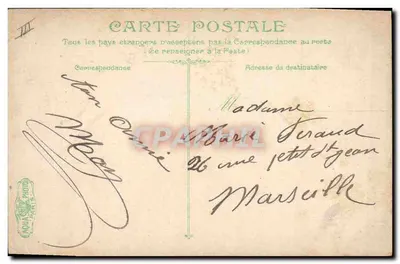 III
CARTE POSTALE
Tous les pays étrangers n'acceptent pas la Correspondance au recto
(Se renseigner à la Poste)
Correspondance
Adresse du destinataire
May
Madame
Marie Veraud
26 rue petit St Jean
Marseille